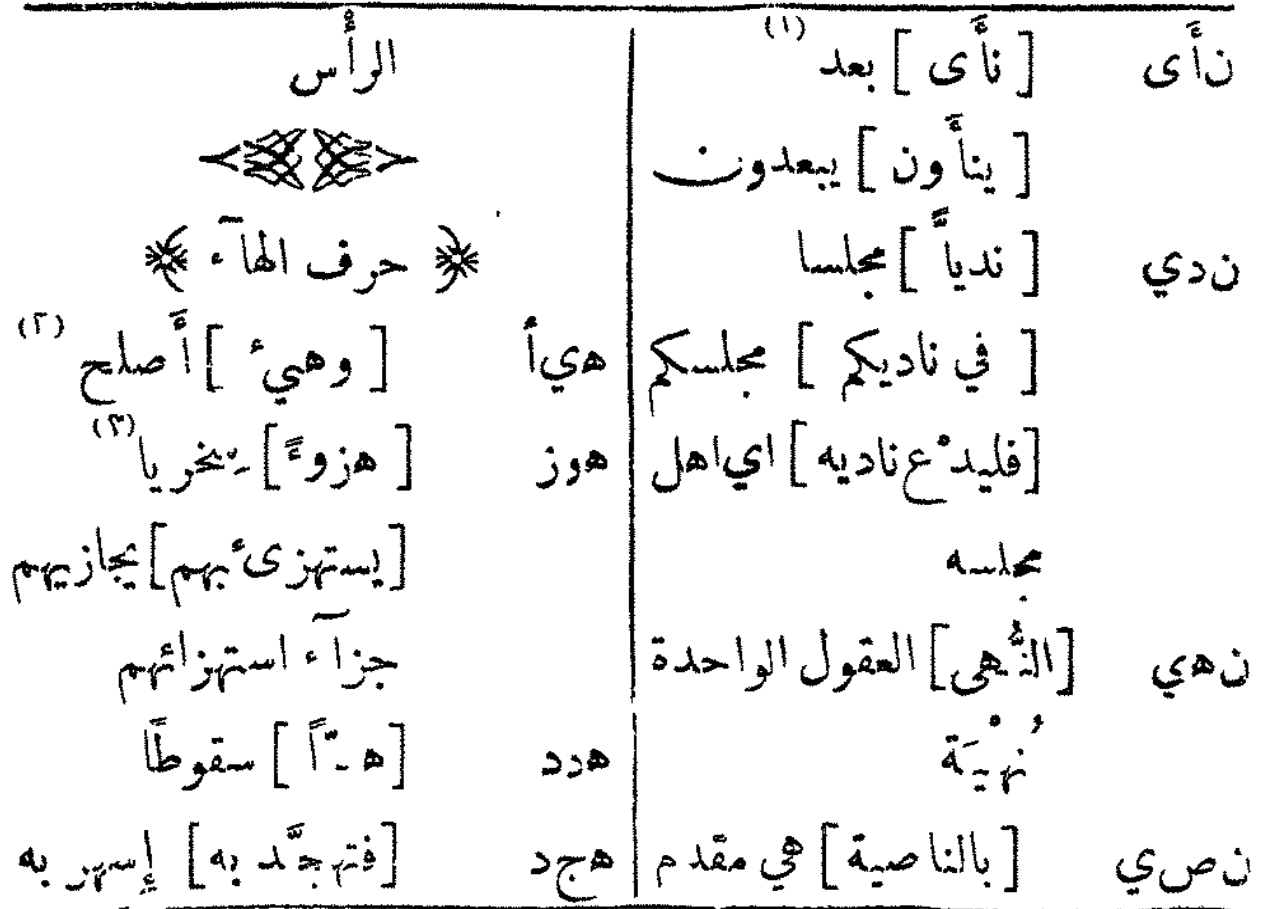 نأَى [ نأَى ] بعد (١)
[ ينأَون ] يبعدون
ندي [ نديًّا ] مجلسا
[ في ناديكم ] مجلسكم
[فليدْع ناديه ] اي اهل
مجلسه
نهي [النُّهى] العقول الواحدة
نُهْيَة
نصي [ بالناصية ] هي مقدم
الرأس
﴿ حرف الهآء ﴾
هيأ [ وهيء ] أَصلح (٢)
هوز [ هزوءً] يا (٣)
[يستهزىء بهم] يجازيهم
جزآء استهزائهم
هدد [ ] سقوطًا
هجد [فتهجَّد به] إسهر به